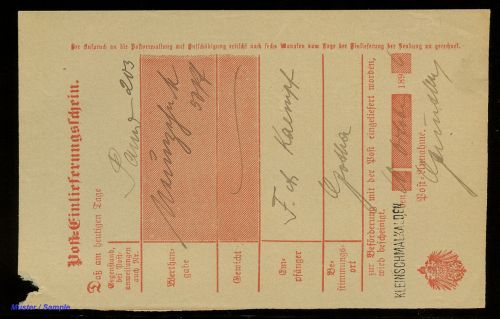 Der Anspruch an die Postverwaltung auf Entschädigung erlischt nach sechs Monaten vom Tage der Einlieferung der Sendung an gerechnet.
Post-Einlieferungsschein.
Daß am heutigen Tage
Gegenstand, bei Post-anweisungen auch Nr.
203
Werthan-gabe
Gewicht
Em-pfänger
F. A. Kaempf
Be-stimmungs-ort
Gotha
zur Beförderung mit der Post eingeliefert worden,
wird bescheinigt.
KLEINSCHMALKALDEN
189
Post-Annahme.
Muster / Sample